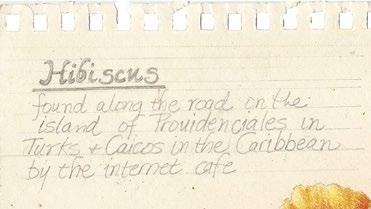 Hibiscus
found along the road on the
island of Providenciales in
Turks + Caicos in the Caribbean
by the internet cafe